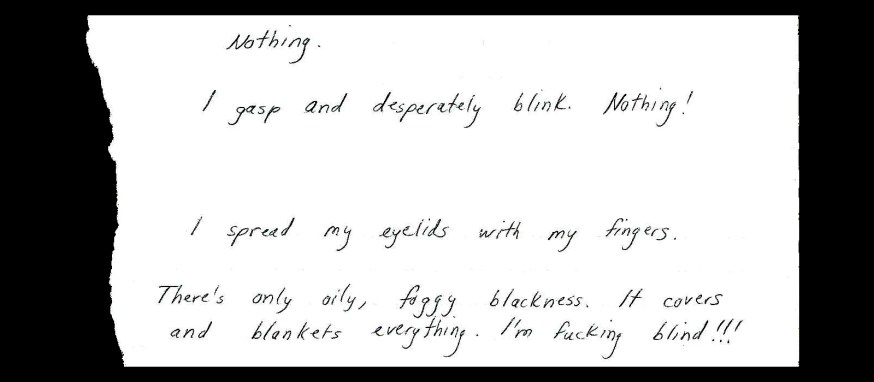 Nothing.
I gasp and desperately blink. Nothing!
I spread my eyelids with my fingers.
There's only oily, foggy blackness. It covers
and blankets everything. I'm fucking blind!!!